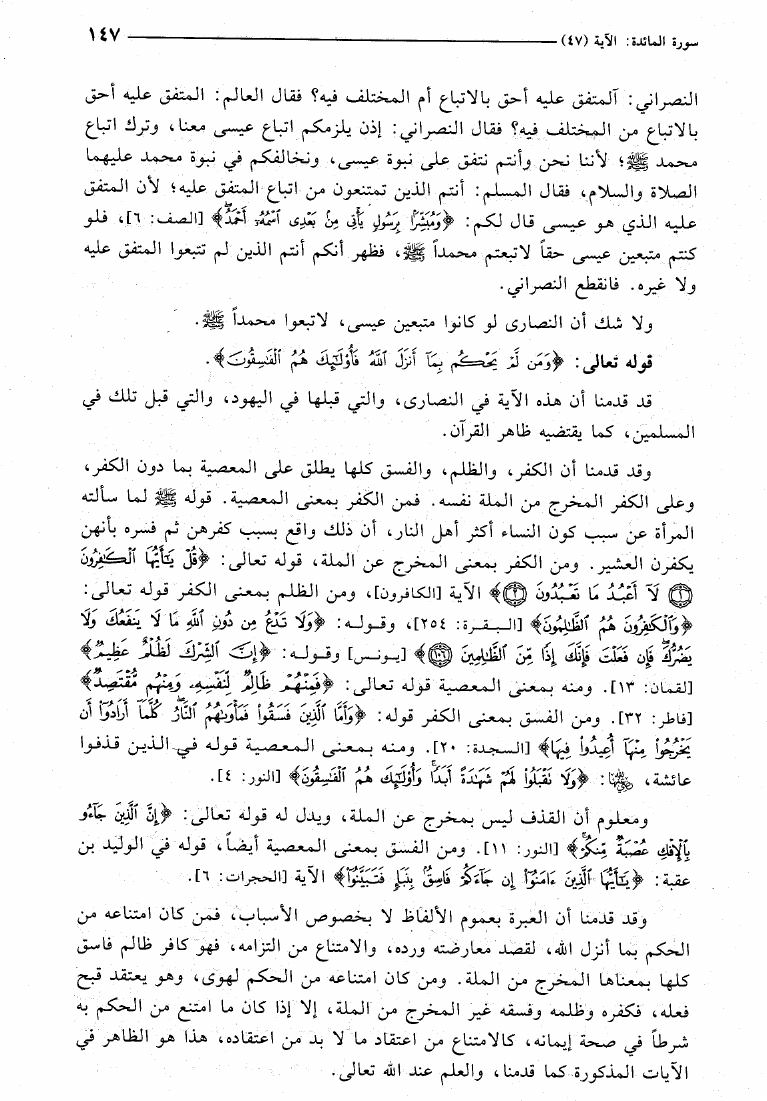 سورة المائدة: الآية (٤٧) ١٤٧
النصراني: آلمتفق عليه أحق بالاتباع أم المختلف فيه؟ فقال العالم: المتفق عليه أحق
بالاتباع من المختلف فيه؟ فقال النصراني: إذن يلزمكم اتباع عيسى معنا، وترك اتباع
محمد ﷺ؛ لأننا نحن وأنتم نتفق على نبوة عيسى، ونخالفكم في نبوة محمد عليهما
الصلاة والسلام، فقال المسلم: أنتم الذين تمتنعون من اتباع المتفق عليه؛ لأن المتفق
عليه الذي هو عيسى قال لكم: ﴿وَمُبَشِّرًا بِرَسُولٍ يَأْتِي مِنْ بَعْدِي اسْمُهُ أَحْمَدُ﴾ [الصف: ٦]، فلو
كنتم متبعين عيسى حقاً لاتبعتم محمداً ﷺ، فظهر أنكم أنتم الذين لم تتبعوا المتفق عليه
ولا غيره. فانقطع النصراني.
ولا شك أن النصارى لو كانوا متبعين عيسى، لاتبعوا محمداً ﷺ.
قوله تعالى: ﴿وَمَن لَّمْ يَحْكُم بِمَا أَنزَلَ اللَّهُ فَأُوْلَٰئِكَ هُمُ الْفَاسِقُونَ﴾.
قد قدمنا أن هذه الآية في النصارى، والتي قبلها في اليهود، والتي قبل تلك في
المسلمين، كما يقتضيه ظاهر القرآن.
وقد قدمنا أن الكفر، والظلم، والفسق كلها يطلق على المعصية بما دون الكفر،
وعلى الكفر المخرج من الملة نفسه. فمن الكفر بمعنى المعصية. قوله ﷺ لما سألته
المرأة عن سبب كون النساء أكثر أهل النار، أن ذلك واقع بسبب كفرهن ثم فسره بأنهن
يكفرن العشير. ومن الكفر بمعنى المخرج عن الملة، قوله تعالى: ﴿قُلْ يَٰأَيُّهَا الْكَٰفِرُونَ
١ لَا أَعْبُدُ مَا تَعْبُدُونَ ٢﴾ الآية [الكافرون]، ومن الظلم بمعنى الكفر قوله تعالى:
﴿وَالْكَٰفِرُونَ هُمُ الظَّٰلِمُونَ﴾ [البقرة: ٢٥٤]، وقوله: ﴿وَلَا تَدْعُ مِن دُونِ اللَّهِ مَا لَا يَنفَعُكَ وَلَا
يَضُرُّكَ فَإِن فَعَلْتَ فَإِنَّكَ إِذًا مِّنَ الظَّٰلِمِينَ ١٠٦﴾ [يونس] وقوله: ﴿إِنَّ الشِّرْكَ لَظُلْمٌ عَظِيمٌ﴾
[لقمان: ١٣]. ومنه بمعنى المعصية قوله تعالى: ﴿فَمِنْهُمْ ظَالِمٌ لِّنَفْسِهِ وَمِنْهُم مُّقْتَصِدٌ﴾
[فاطر: ٣٢]. ومن الفسق بمعنى الكفر قوله: ﴿وَأَمَّا الَّذِينَ فَسَقُوا فَمَأْوَىٰهُمُ النَّارُ كُلَّمَا أَرَادُوا أَن
يَخْرُجُوا مِنْهَا أُعِيدُوا فِيهَا﴾ [السجدة: ٢٠]. ومنه بمعنى المعصية قوله في الذين قذفوا
عائشة، رضي الله عنها: ﴿وَلَا تَقْبَلُوا لَهُمْ شَهَٰدَةً أَبَدًا وَأُوْلَٰئِكَ هُمُ الْفَٰسِقُونَ﴾ [النور: ٤].
ومعلوم أن القذف ليس بمخرج عن الملة، ويدل له قوله تعالى: ﴿إِنَّ الَّذِينَ جَاءُو
بِالْإِفْكِ عُصْبَةٌ مِّنكُمْ﴾ [النور: ١١]. ومن الفسق بمعنى المعصية أيضاً، قوله في الوليد بن
عقبة: ﴿يَٰأَيُّهَا الَّذِينَ ءَامَنُوا إِن جَاءَكُمْ فَاسِقٌ بِنَبَإٍ فَتَبَيَّنُوا﴾ الآية [الحجرات: ٦].
وقد قدمنا أن العبرة بعموم الألفاظ لا بخصوص الأسباب، فمن كان امتناعه من
الحكم بما أنزل الله، لقصد معارضته ورده، والامتناع من التزامه، فهو كافر ظالم فاسق
كلها بمعناها المخرج من الملة. ومن كان امتناعه من الحكم لهوى، وهو يعتقد قبح
فعله، فكفره وظلمه وفسقه غير المخرج من الملة، إلا إذا كان ما امتنع من الحكم به
شرطاً في صحة إيمانه، كالامتناع من اعتقاد ما لا بد من اعتقاده، هذا هو الظاهر في
الآيات المذكورة كما قدمنا، والعلم عند الله تعالى.